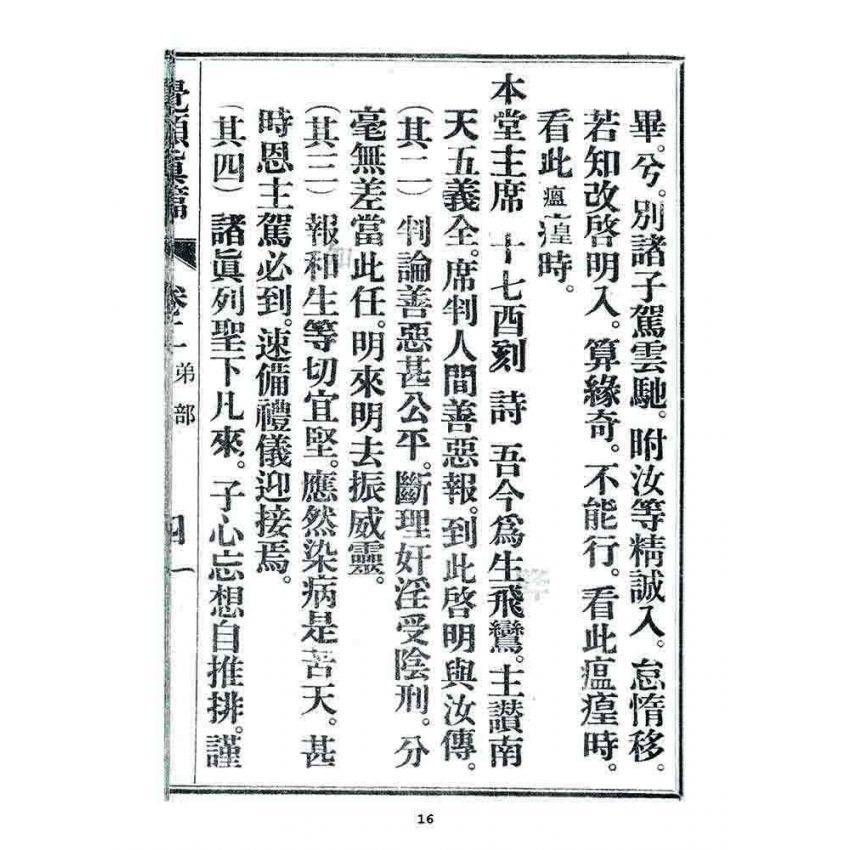 畢。兮。別諸子駕雲馳。咐汝等精誠入。怠惰移。
若知改啓明入。算緣奇。不能行。看此瘟㾮時。
看此瘟㾮時。
本堂主席 十七酉刻 詩 吾今爲生飛鸞。主讃南
天五義全。席判人間善惡報。到此啓明與汝傳。
(其二) 判論善惡甚公平。斷理奸淫受陰刑。分
毫無差當此任。明來明去振威靈。
(其三) 報和生等切宜堅。應然染病是苦天。甚
時恩主駕必到。速備禮儀迎接焉。
(其四) 諸眞列聖下凡來。子心忘想自推排。謹
卷二 弟部 四一
16